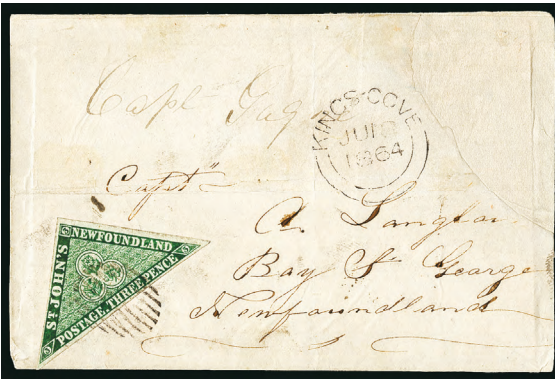 Capt Gag
KINGS-COVE
JU
1864
Capt
A. Langlo
Bay St George
Newfoundland
NEWFOUNDLAND
ST JOHN'S
POSTAGE, THREE PENCE
3
3
3